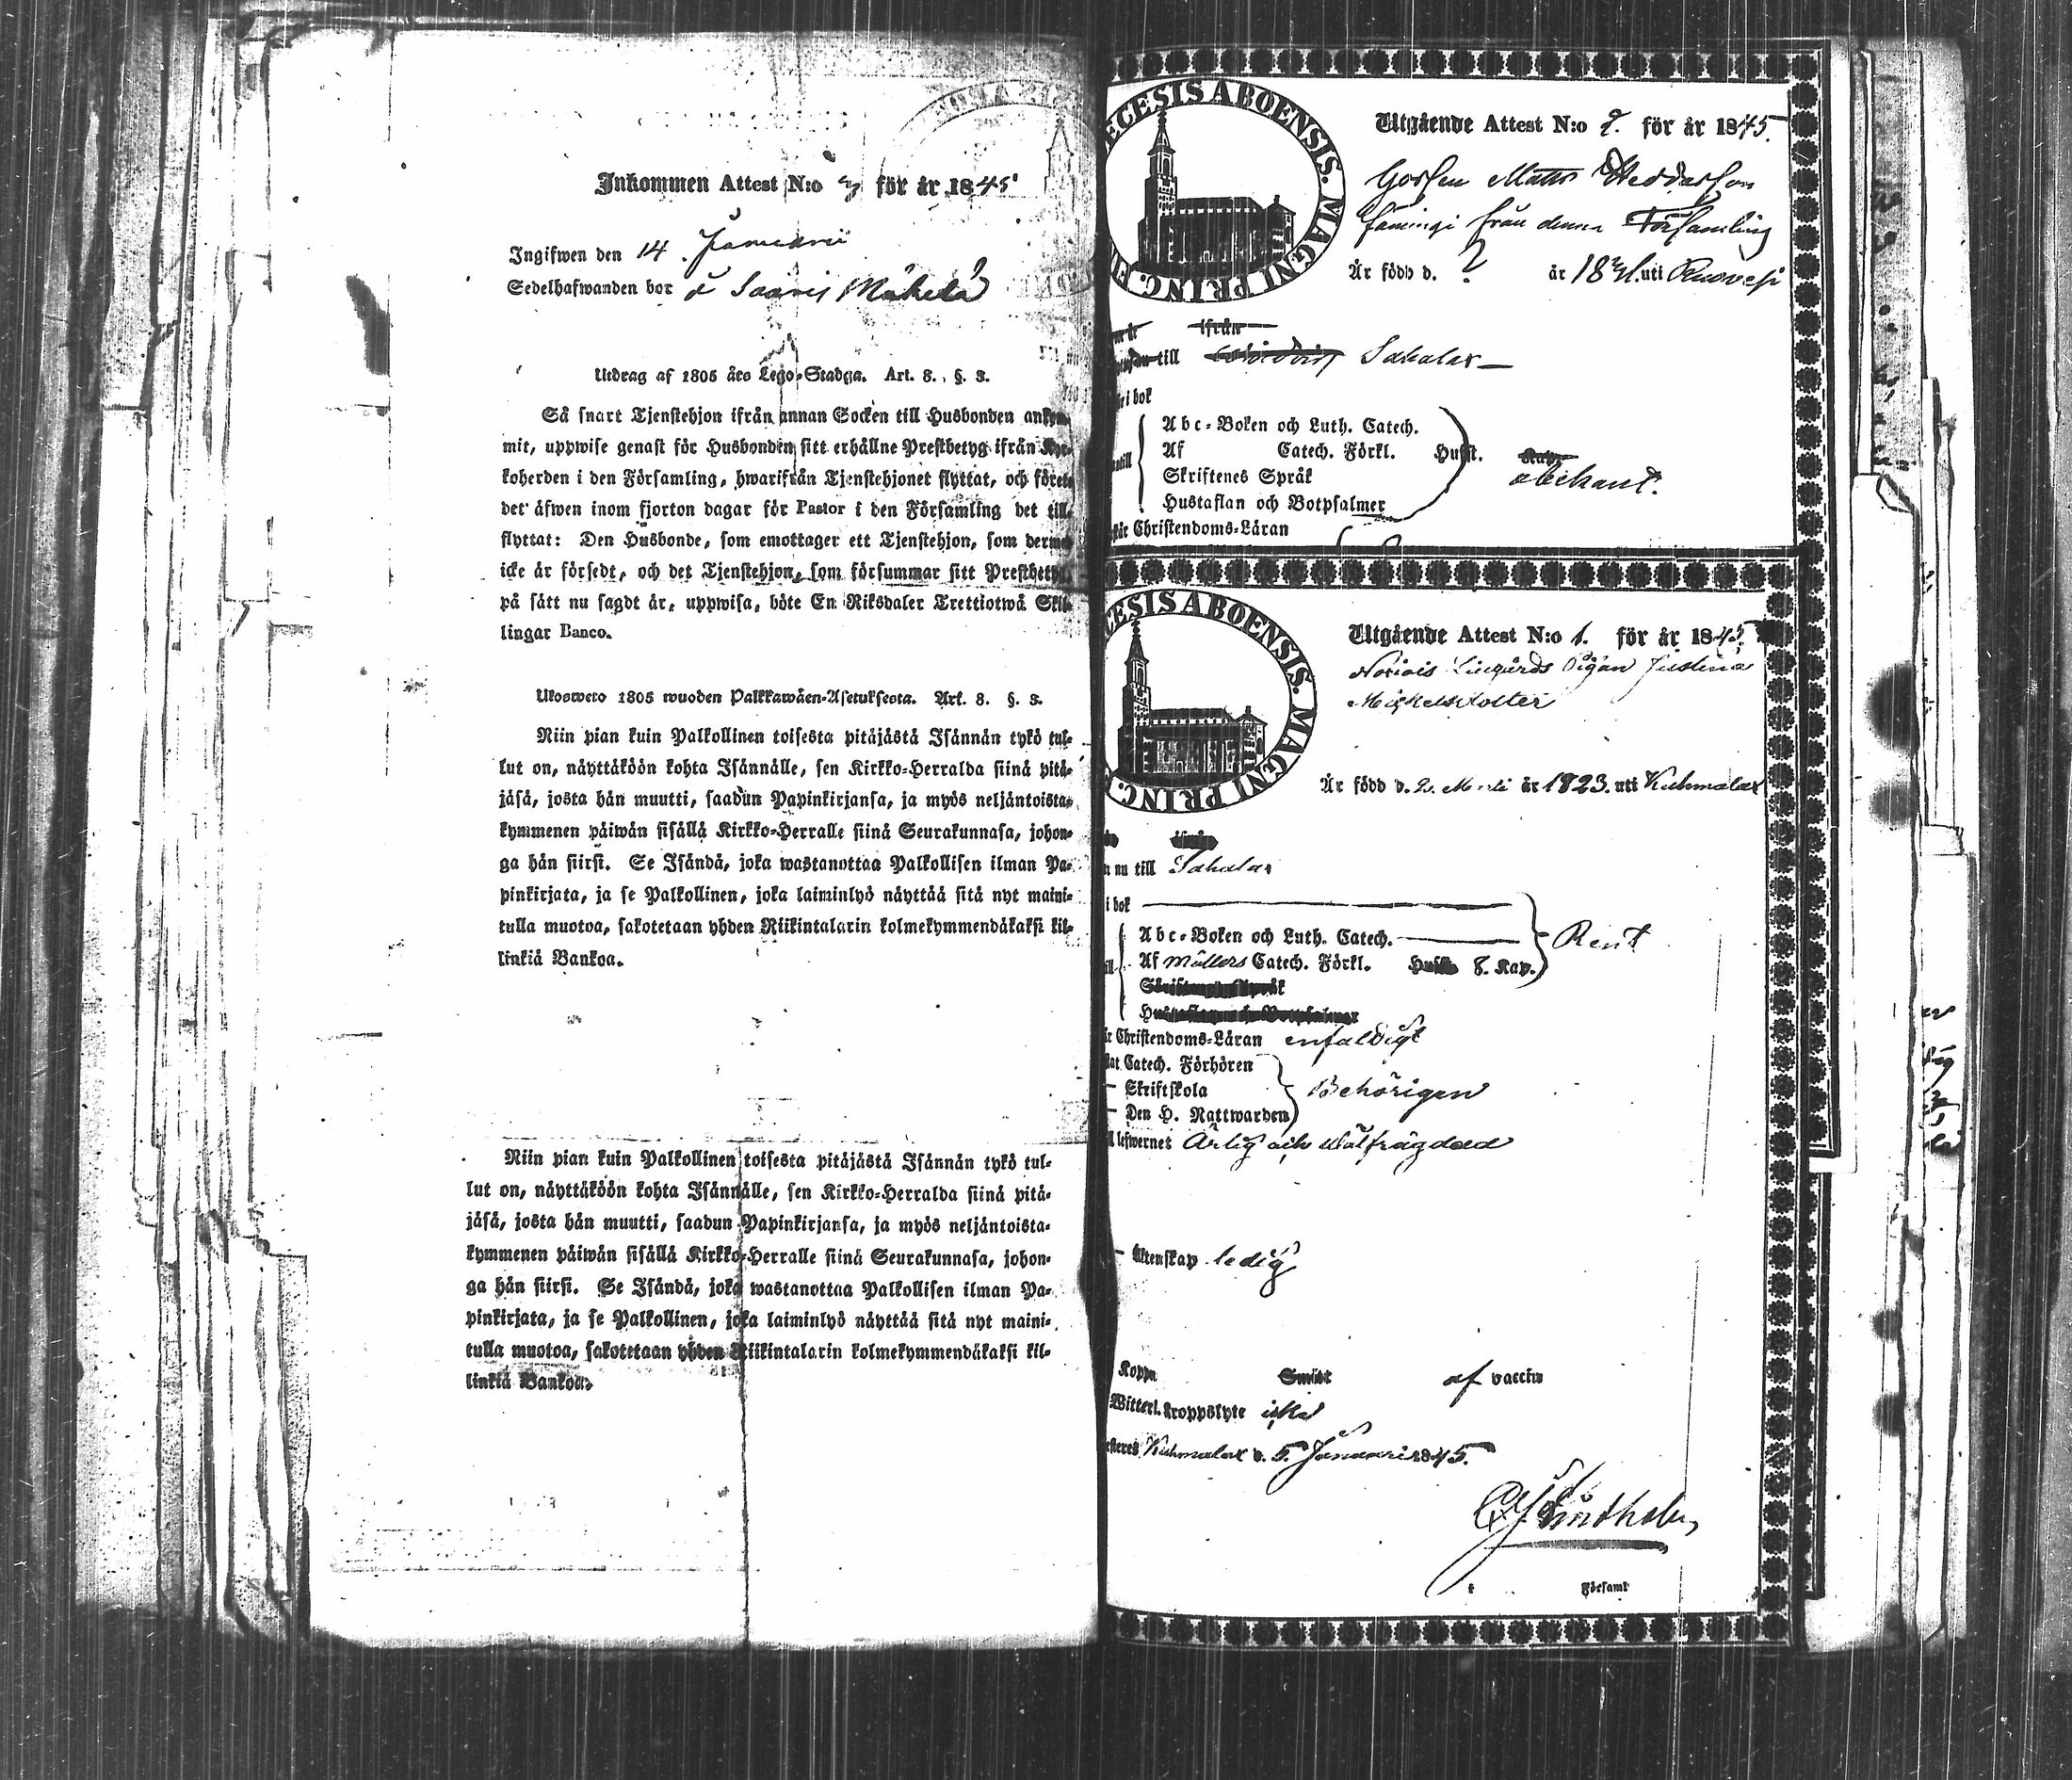 Inkommen Attest N:o för år 1845
Ingifwen den 14. Januarii
Sedelhafwanden bor i Saaris Mäkelä
Utdrag af 1805 års Lego-Stadga. Art. 8. §. 3.
Så snart Tjenstehjon ifrån annan Socken till Husbonden ankom-
mit, uppwise genast för Husbonden sitt erhållne Prestbetyg ifrån Kyr-
koherden i den Församling, hwarifrån Tjenstehjonet flyttat, och förete
det äfwen inom fjorton dagar för Pastor i den Församling det till-
flyttat: Den Husbonde, som emottager ett Tjenstehjon, som dermed
icke är försedt, och det Tjenstehjon, som försummar sitt Prestbetyg,
på sätt nu sagdt är, uppwisa, böte En Riksdaler Trettiotwå Skil-
lingar Banco.
Ulosweto 1805 wuoden Palkkawäen-Asetuksesta. Art. 8. §. 3.
Niin pian kuin Palkollinen toisesta pitäjästä Isännän tykö tul-
lut on, näyttäköön kohta Isännälle, sen Kirkko-Herralda siinä pitä-
jäsä, josta hän muutti, saadun Papinkirjansa, ja myös neljäntoista-
kymmenen päiwän sisällä Kirkko-Herralle siinä Seurakunnasa, johon-
ga hän siirsi. Se Isändä, joka wastanottaa Palkollisen ilman Pa-
pinkirjata, ja se Palkollinen, joka laiminlyö näyttää sitä nyt maini-
tulla muotoa, sakotetaan yhden Riikintalarin kolmekymmendäkaksi kil-
linkiä Bankoa.
Niin pian kuin Palkollinen toisesta pitäjästä Isännän tykö tul-
lut on, näyttäköön kohta Isännälle, sen Kirkko-Herralda siinä pitä-
jäsä, josta hän muutti, saadun Papinkirjansa, ja myös neljäntoista-
kymmenen päiwän sisällä Kirkko-Herralle siinä Seurakunnasa, johon-
ga hän siirsi. Se Isändä, joka wastanottaa Palkollisen ilman Pa-
pinkirjata, ja se Palkollinen, joka laiminlyö näyttää sitä nyt maini-
tulla muotoa, sakotetaan yhden Riikintalarin kolmekymmendäkaksi kil-
linkiä Bankoa.
ECESIS ABOENSIS. MAGNI PRINC.
Utgående Attest N:o 2. för år 1845.
Gossen Matts
från denna Församling
Är född d. ? år 18 uti
ifrån
till Sahalax
i bok
Abc-Boken och Luth. Catech.
Af Catech. Förkl. Husf.
Skriftenes Språk
Hustaflan och Botpsalmer
obekant.
Christendoms-Läran
CESIS ABOENSIS. MAGNI PRINC.
Utgående Attest N:o 1. för år 1845
Pigan Justina
Michelsdotter
Är född d. 2. år 1823. uti Kuhmalax
nu till Sahalax
i bok
Abc-Boken och Luth. Catech.
Af Möllers Catech. Förkl. 8. Kap.
Rent
Christendoms-Läran enfaldigt
Catech. Förhören
Skriftskola
Den H. Nattwarden
Behörigen
lefwernet Ärlig och wälfrägdad
Äktenskap ledig
Koppn af vaccin
Witterl. kroppslyte icke
Kuhmalax d. 5. Januari 1845.
Lindholm
Församl